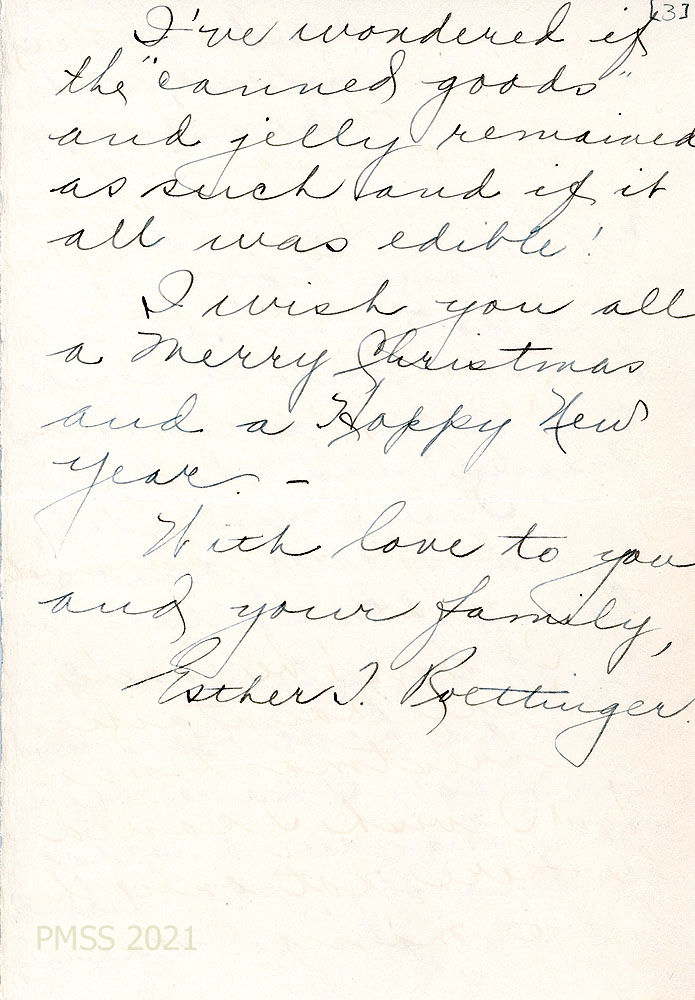 [3]
I've wondered if
the "canned goods"
and jelly remained
as such and if it
all was edible!
I wish you all
a Merry Christmas
and a Happy New
Year. –
With love to you
and your family,
Esther T. Boettinger.
PMSS 2021